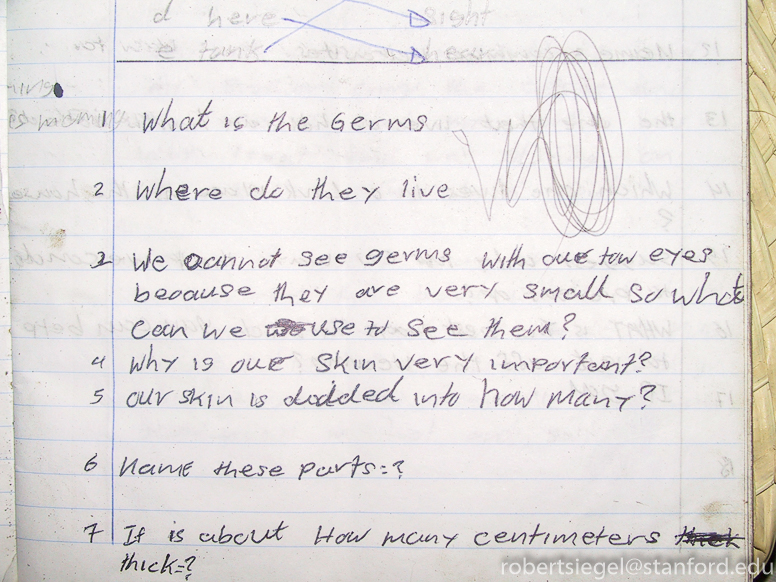 d here Right
e tank
1 What is the Germs
2 Where do they live
3 We cannot see germs with our tow eyes
because they are very small so what
can we use to see them?
4 Why is our skin very important?
5 our skin is dodded into how many?
6 Name these parts=?
7 It is about How many centimeters thick
thick=?
robertsiegel@stanford.edu